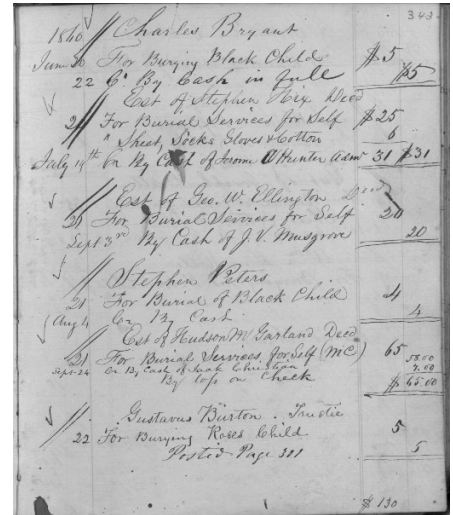 343
1860 // Charles Bryant
June 20 For Burying Black Child $5
22 Cr By Cash in full $5
Est of Stephen Hix Decd
21 For Burial Services for Self $25
" Sheet, Socks Gloves & Cotton 6
July 19th Cr By Cash of Hunter Adm 31 $31
// Est of Geo. W. Ellington Decd
21 For Burial Services for Self 20
Sept 3rd By Cash of J. V. Musgrove 20
// Stephen Peters
21 For Burial of Black Child 4
Aug 4 Cr By Cash 4
// Est of Hudson M Garland Decd
21 For Burial Services for Self (MC) 65
Sept 24 Cr By Cash of Christian 58.00
By loss on Check 7.00
$65.00
// Gustavus Burton. Trustie
22 For Burying Roses Child 5
Postid Page 321 5
$130